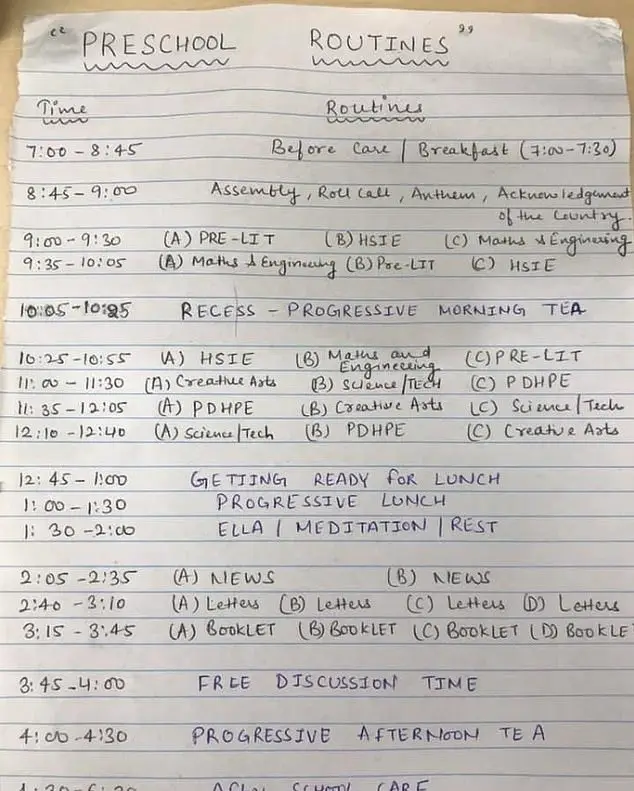 " PRESCHOOL ROUTINES "
Time Routines
7:00 - 8:45 Before Care | Breakfast (7:00-7:30)
8:45 - 9:00 Assembly, Roll Call, Anthem, Acknowledgement
of the Country.
9:00 - 9:30 (A) PRE-LIT (B) HSIE (C) Maths & Engineering
9:35 - 10:05 (A) Maths & Engineering (B) Pre-LIT (C) HSIE
10:05 - 10:25 RECESS - PROGRESSIVE MORNING TEA
10:25 - 10:55 (A) HSIE (B) Maths and Engineering (C) PRE-LIT
11:00 - 11:30 (A) Creative Arts (B) Science/Tech (C) PDHPE
11:35 - 12:05 (A) PDHPE (B) Creative Arts (C) Science/Tech
12:10 - 12:40 (A) Science/Tech (B) PDHPE (C) Creative Arts
12:45 - 1:00 GETTING READY FOR LUNCH
1:00 - 1:30 PROGRESSIVE LUNCH
1:30 - 2:00 ELLA | MEDITATION | REST
2:05 - 2:35 (A) NEWS (B) NEWS
2:40 - 3:10 (A) Letters (B) Letters (C) Letters (D) Letters
3:15 - 3:45 (A) BOOKLET (B) BOOKLET (C) BOOKLET (D) BOOKLE
3:45 - 4:00 FREE DISCUSSION TIME
4:00 - 4:30 PROGRESSIVE AFTERNOON TEA
SCHOOL CARE